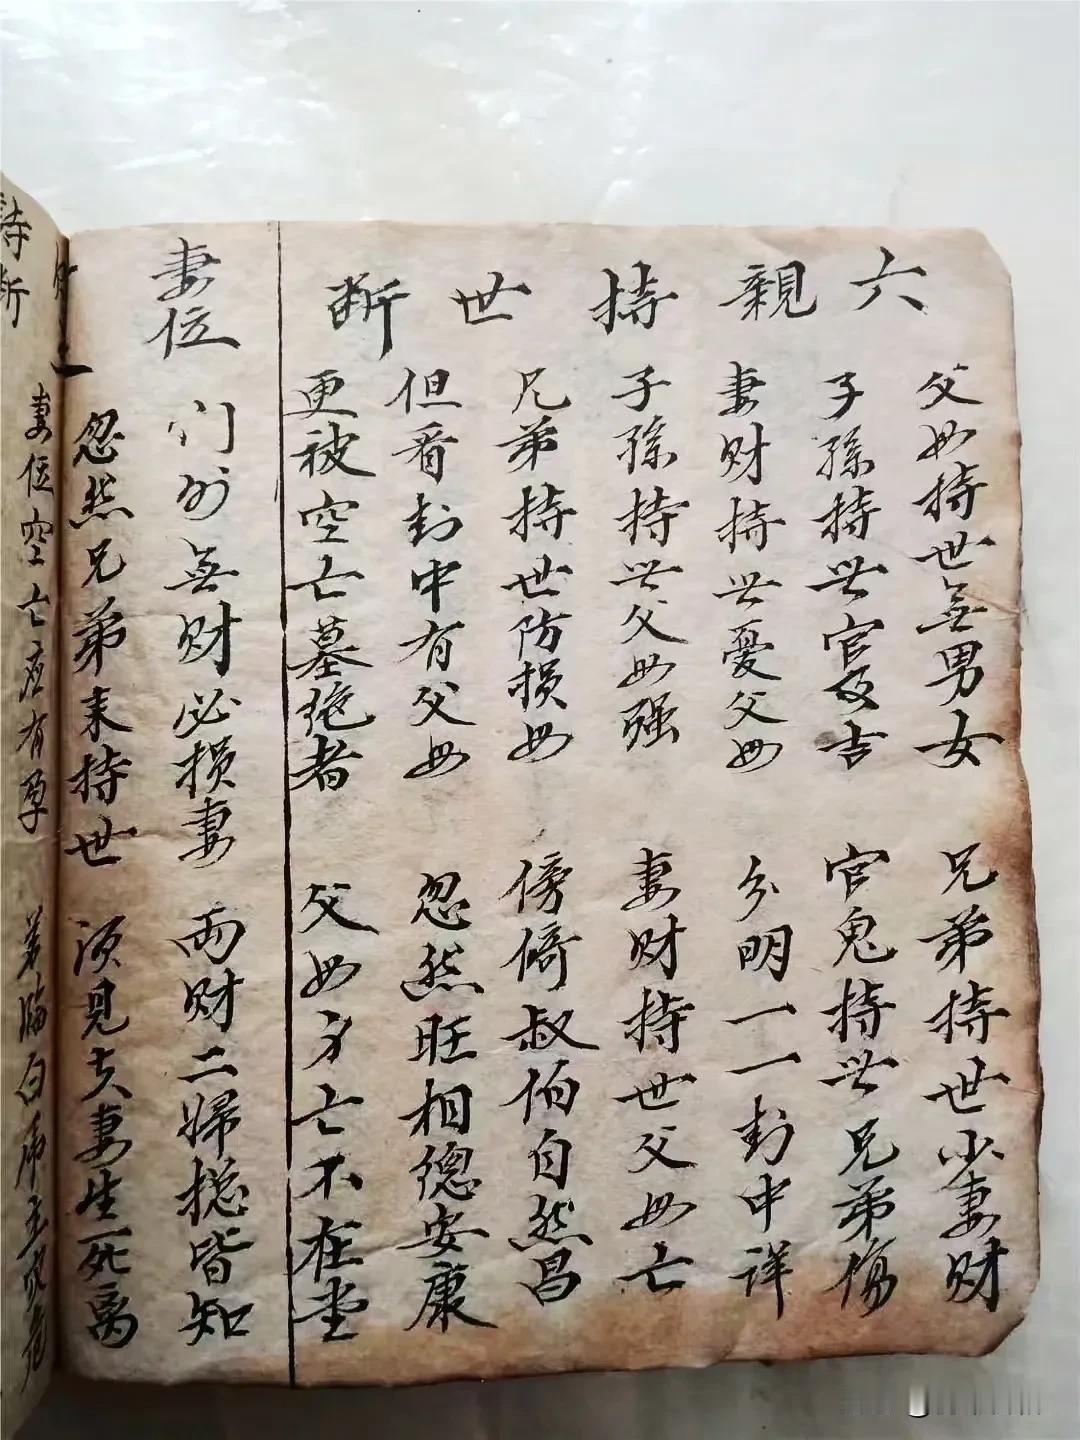 六親持世断
父母持世無男女 兄弟持世少妻财
子孫持世官爻吉 官鬼持世兄弟傷
妻财持世憂父母 分明一一封中详
子孫持世父母强 妻财持世父母亡
兄弟持世防损母 傍倚叔伯自然昌
但看封中有父母 忽然旺相德安康
更被空亡墓绝者 父母身亡不在堂
妻位
门外無财必损妻 両财二婦捴皆知
忽然兄弟来持世 须見夫妻生死离
妻位空亡应有孕